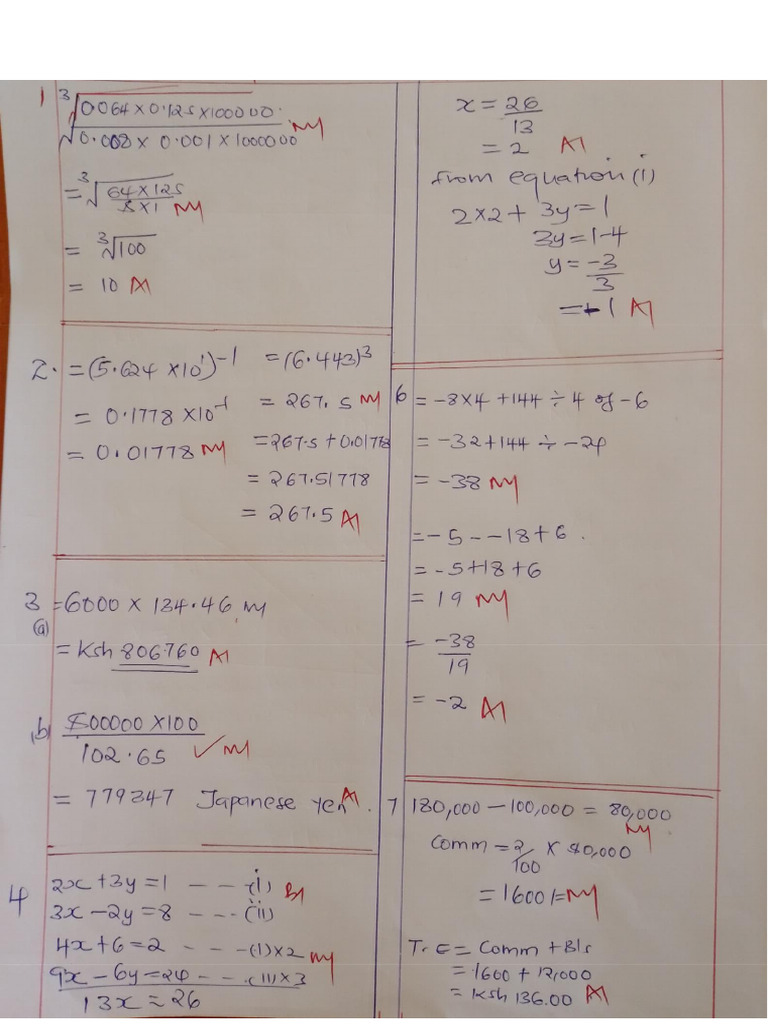 1 ∛(0.064 × 0.125 × 100000.
0.008 × 0.001 × 1000000) M1
= ∛(64 × 125
8 × 1) M1
= ∛100
= 10 A1
2. = (5.624 × 10¹)⁻¹
= 0.1778 × 10⁻¹
= 0.01778 M1
= (6.443)³
= 267.5 M1
= 267.5 + 0.01778
= 267.51778
= 267.5 A1
3 = 6000 × 134.46 M1
(a)
= Ksh 806760 A1
b) 800000 × 100
102.65 ✓ M1
= 779347 Japanese yen A1.
4 2x + 3y = 1 - - - (i) B1
3x - 2y = 8 - - - (ii)
4x + 6 = 2 - - - (1) × 2 M1
9x - 6y = 24 - - . (11) × 3
13x = 26
x = 26
13
= 2 A1
from equation (i)
2 × 2 + 3y = 1
3y = 1 - 4
y = -3
3
= -1 A1
6 = -8 × 4 + 144 ÷ 4 of -6
= -32 + 144 ÷ -24
= -38 M1
= -5 - -18 + 6.
= -5 + 18 + 6
= 19 M1
= -38
19
= -2 A1
7 180,000 - 100,000 = 80,000
M1
Comm = 2 × 80,000
100
= 1600/= M1
T.E = Comm + B/s
= 1600 + 12,000
= Ksh 136.00 A1